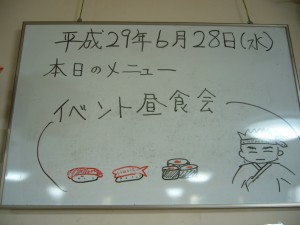 平成29年6月28日(水)
本日のメニュー
イベント昼食会